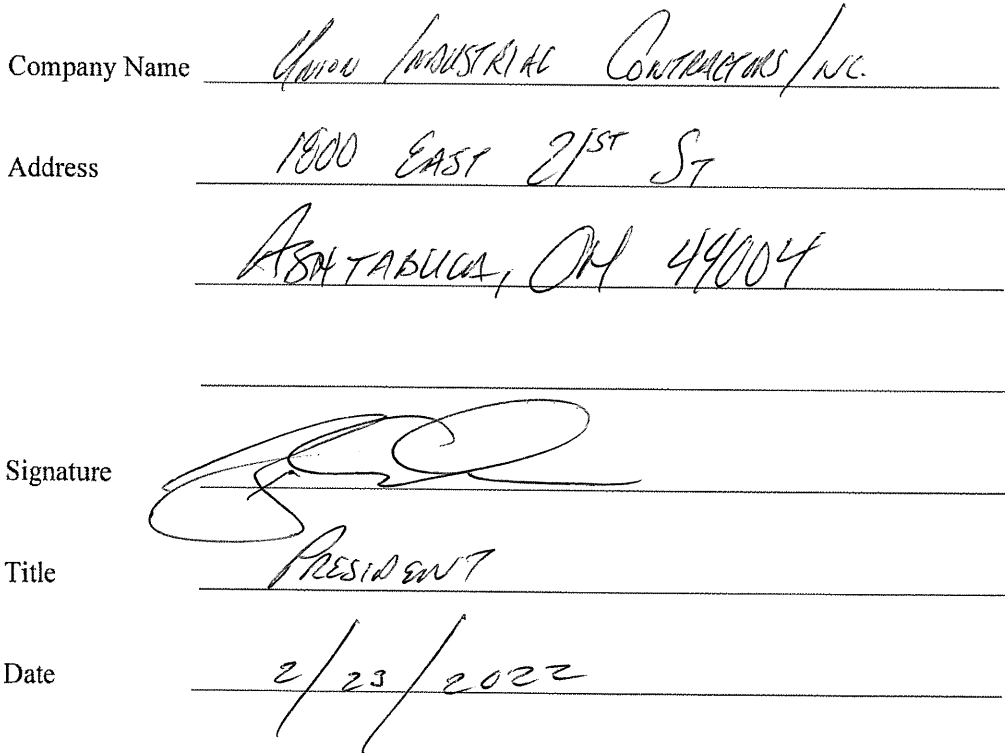 Company Name Union Industrial Contractors Inc.
Address 1800 East 21st St
Ashtabula, OH 44004
Signature
Title President
Date 2/23/2022